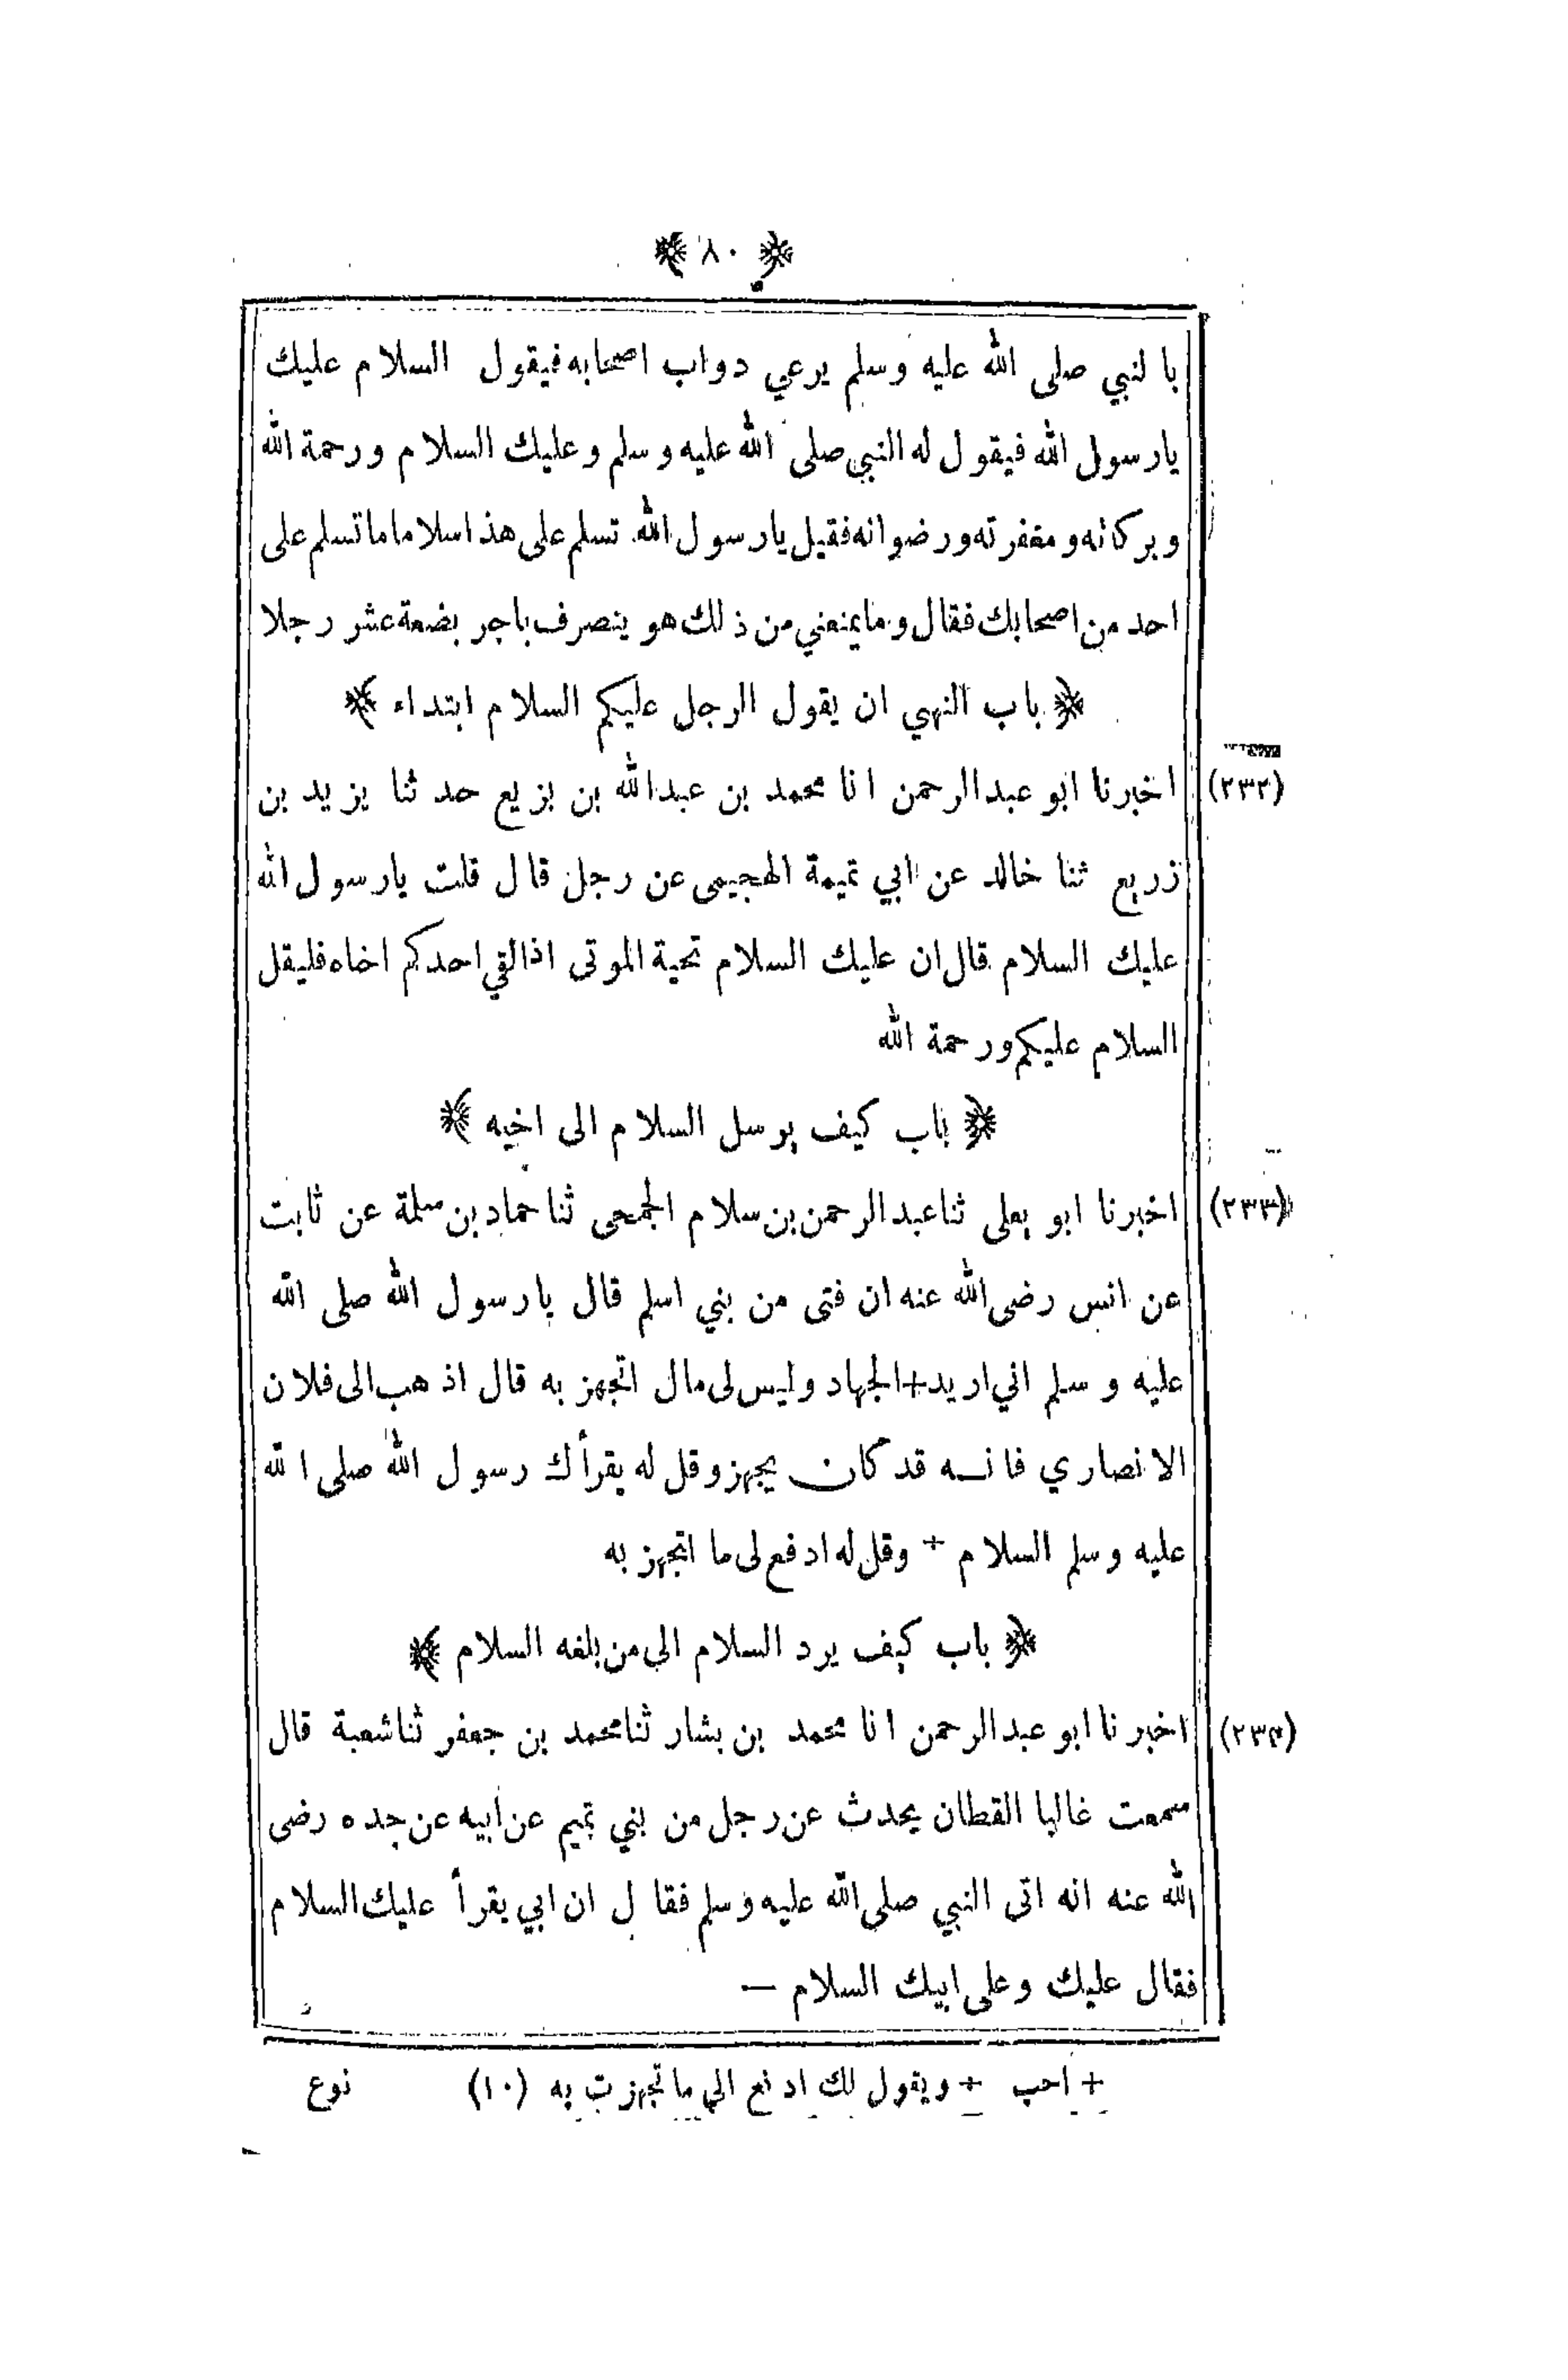 ﴿ ٨٠ ﴾
بالنبي صلى الله عليه وسلم يرعي دواب اصحابه فيقول السلام عليك
يارسول الله فيقول له النبي صلى الله عليه وسلم وعليك السلام ورحمة الله
وبركاته ومغفرته ورضوانه فقيل يارسول الله تسلم على هذا سلاما ما تسلم على
احد من اصحابك فقال وما يمنعني من ذلك هو ينصرف باجر بضعة عشر رجلا
﴿ باب النهي ان يقول الرجل عليكم السلام ابتداء ﴾
(٢٣٢) اخبرنا ابو عبدالرحمن انا محمد بن عبدالله بن بزيع حدثنا يزيد بن
زريع ثنا خالد عن ابي تميمة الهجيمى عن رجل قال قلت يارسول الله
عليك السلام قال ان عليك السلام تحية الموتى اذا لقي احدكم اخاه فليقل
السلام عليكم ورحمة الله
﴿ باب كيف يرسل السلام الى اخيه ﴾
(٢٣٣) اخبرنا ابو يعلى ثنا عبدالرحمن بن سلام الجمحى ثنا حماد بن سلمة عن ثابت
عن انس رضى الله عنه ان فتى من بني اسلم قال يارسول الله صلى الله
عليه وسلم اني اريد+الجهاد وليس لى مال اتجهز به قال اذهب الى فلان
الانصاري فانه قد كان يجهز وقل له يقرأك رسول الله صلى الله
عليه وسلم السلام + وقل له ادفع لى ما اتجهز به
﴿ باب كيف يرد السلام الي من بلغه السلام ﴾
(٢٣٤) اخبرنا ابو عبدالرحمن انا محمد بن بشار ثنا محمد بن جعفر ثنا شعبة قال
سمعت غالبا القطان يحدث عن رجل من بني تميم عن أبيه عن جده رضى
الله عنه انه اتى النبي صلى الله عليه وسلم فقال ان ابي يقرأ عليك السلام
فقال عليك وعلى ابيك السلام —
+ احب + ويقول لك ادفع الي ما تجهزت به (١٠) نوع